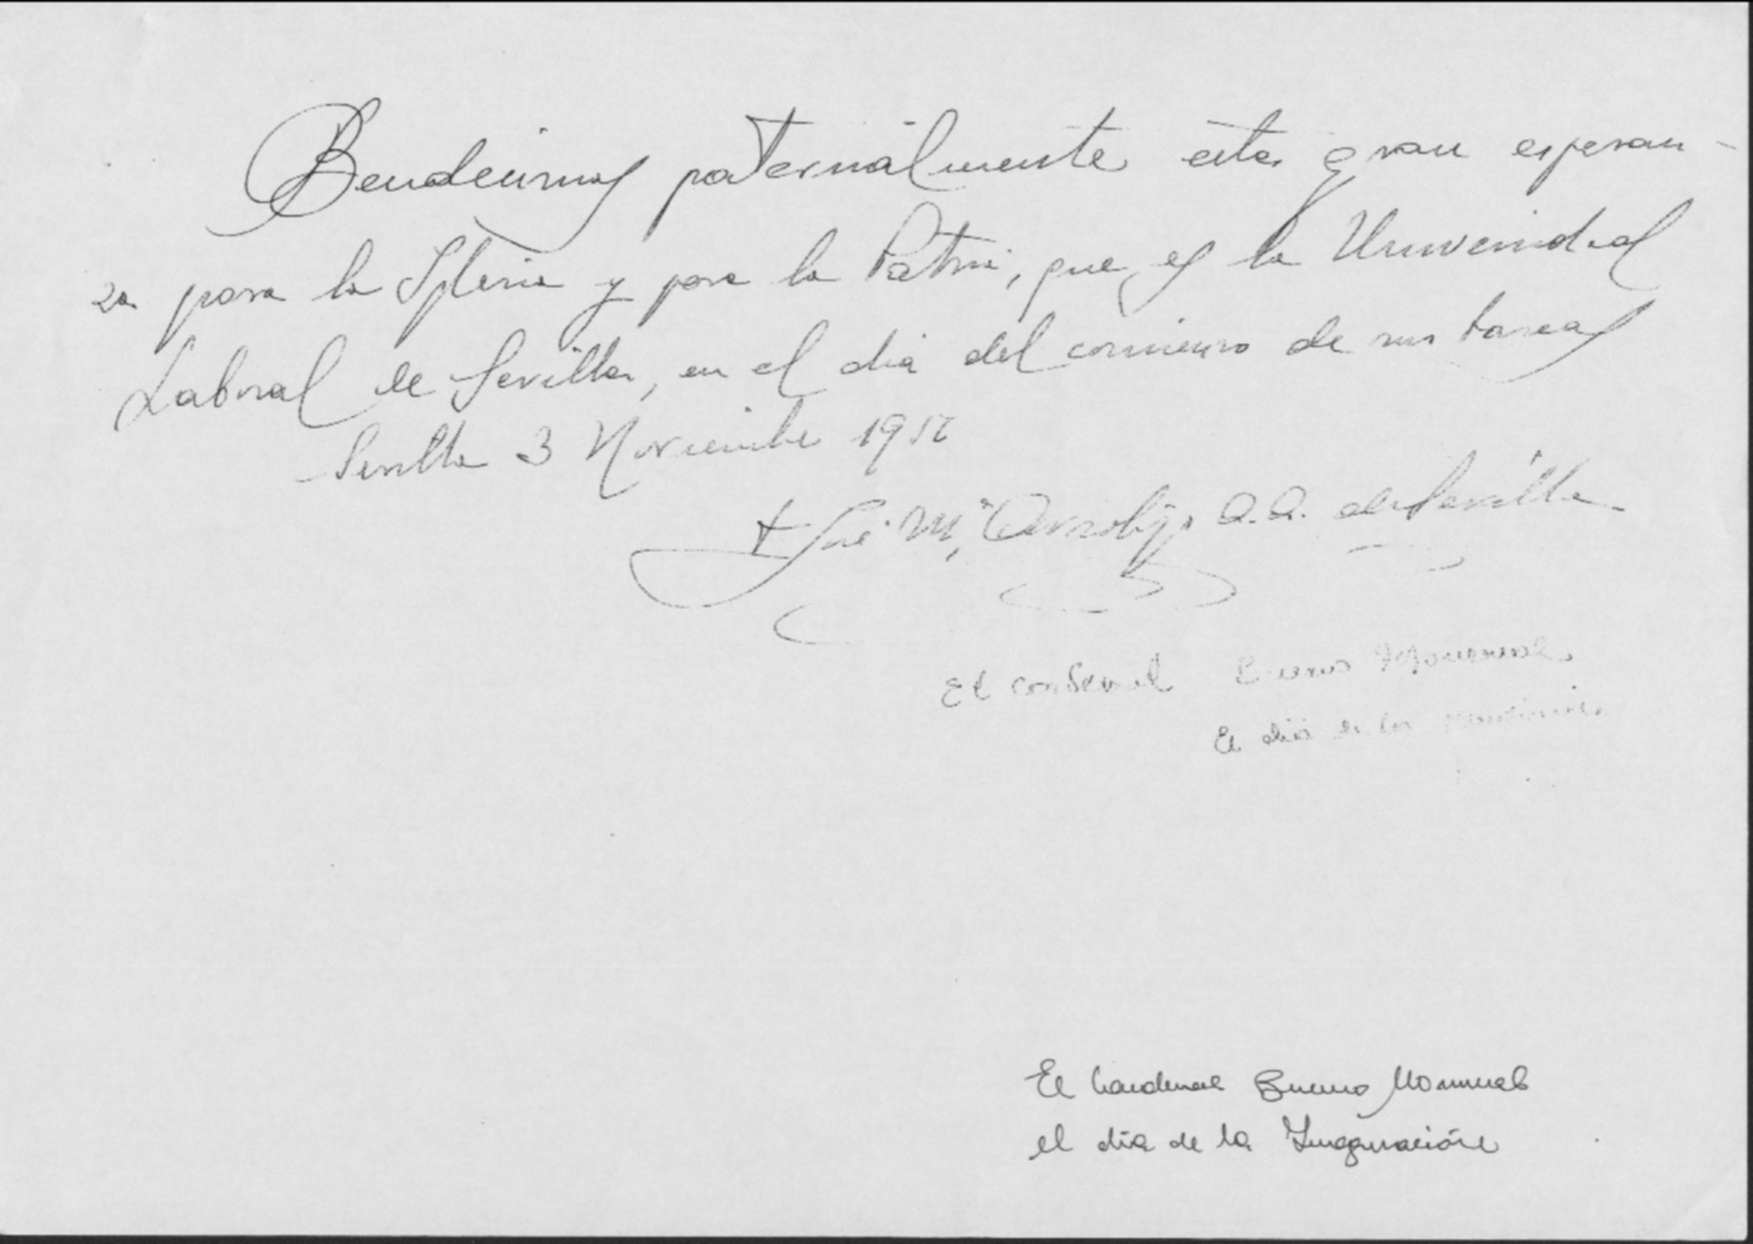 Bendecimos paternalmente esta gran esperan-
za para la Iglesia y para la Patria, que es la Universidad
Laboral de Sevilla, en el dia del comienzo de sus tareas
Sevilla 3 Noviembre 1956
+ José Mª, Arzobispo A.A. de Sevilla
El cardenal Bueno Monreal
El día de la
El Cardenal Bueno Monreal
el día de la Inauguración